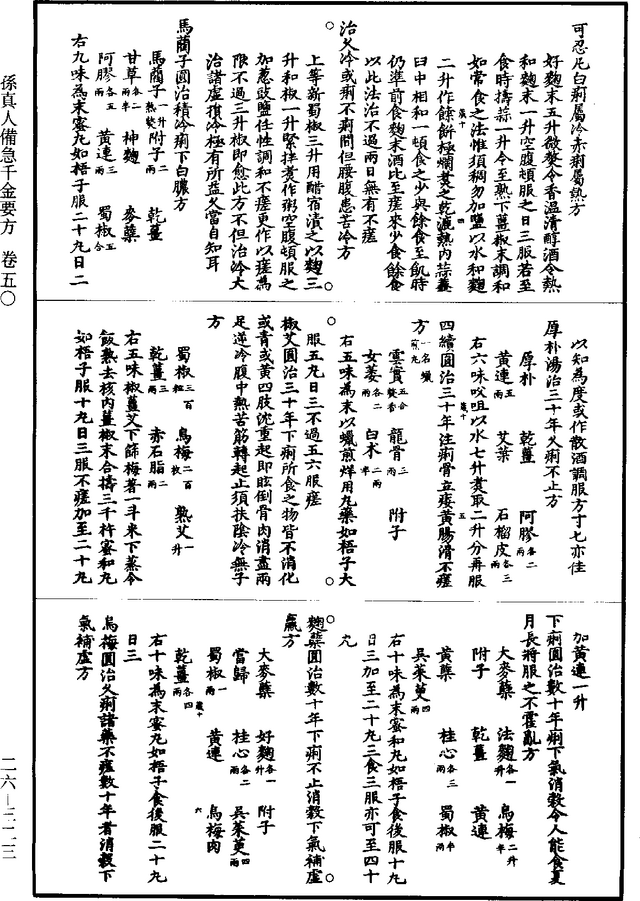 可忍凡白痢屬冷赤痢屬熱方
好麴末五升微熬令香温清醇酒令熱
和麴末一升空腹頓服之日三服若至
食時擣蒜一升令至熟下薑椒末調和
如常食之法惟須稠勿加鹽以水和麴
二升作餺飥極爛煑之乾漉熱内蒜虀
臼中相和一頓食之少與餘食至飢時
仍準前食麴末酒比至瘥來少食餘食
以此法治不過兩日無有不瘥
治久冷或痢不痢間但腰腹患苦冷方
上等新蜀椒三升用醋宿漬之以麴三
升和椒一升緊拌煑作粥空腹頓服之
加葱豉鹽任性調和不瘥更作以瘥為
限不過三升椒即愈此方不但治冷大
治諸虛損冷極有所益久當自知耳
馬藺子圓治積冷痢下白膿方
馬藺子一升熟熬 附子二兩 乾薑
甘草各二兩半 神麴 麥蘗
阿膠各五兩 黄連三兩 蜀椒五合
右九味為末蜜丸如梧子服二十丸日二
以知為度或作散酒調服方寸匕亦佳
厚朴湯治三十年久痢不止方
厚朴 乾薑 阿膠各二兩
黄連五兩 艾葉 石榴皮各三兩
右六味㕮咀以水七升煑取二升分再服
四續圓治三十年注痢骨立痿黄腸滑不瘥
方一名蠟煎丸
雲實五合熬香 龍骨三兩 附子
女萎各二兩 白术二兩半
右五味為末以蠟煎烊用丸藥如梧子大
服五丸日三不過五六服瘥
椒艾圓治三十年下痢所食之物皆不消化
或青或黄四肢沈重起即眩倒骨肉消盡兩
足逆冷腹中熱苦筋轉起止須扶陰冷無子
方
蜀椒三百粒 烏梅二百枚 熟艾一升
乾薑三兩 赤石脂二兩
右五味椒薑艾下篩梅著一斗米下蒸令
飯熟去核内薑椒末合擣三千杵蜜和丸
如梧子服十丸日三服不瘥加至二十丸
加黄連一升
下痢圓治數十年痢下氣消穀令人能食夏
月長將服之不霍亂方
大麥蘗 法麴各一升 烏梅二升半
附子 乾薑 黄連
黄蘗 桂心各三兩 蜀椒半兩
吳茱萸四兩
右十味為末蜜和丸如梧子食後服十丸
日三加至二十丸三食三服亦可至四十
丸
麴蘗圓治數十年下痢不止消穀下氣補虛
羸方
大麥蘗 好麴各一升 附子
當歸 桂心各二兩 吳茱萸四兩
蜀椒一兩 黄連 烏梅肉
乾薑各四兩
右十味為末蜜丸如梧子食後服二十丸
日三
烏梅圓治久痢諸藥不瘥數十年者消穀下
氣補虛方
孫真人備急千金要方 卷五〇
二六—三二三